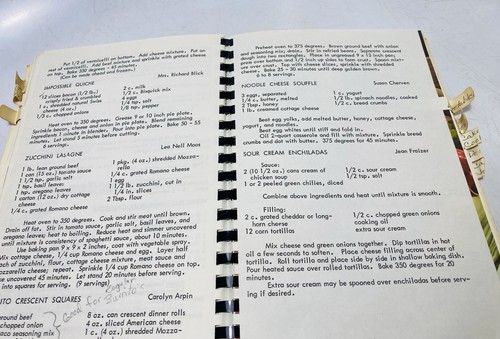 Put 1/2 of vermicelli on bottom. Add cheese mixture. Put on
rest of vermicelli. Add beef mixture and sprinkle with grated cheese
on top. Bake 350 degrees - 45 minutes.
(Can be made ahead and frozen.)
Mrs. Richard Blick
IMPOSSIBLE QUICHE
12 slices bacon (1/2 lb.)
crisply fried & crumbled
1 c. shredded natural Swiss
1/3 c. chopped onion
2 c. milk
1/2 c. Bisquick mix
4 eggs
1/4 tsp. salt
1/8 tsp. pepper
Heat oven to 350 degrees. Grease 9 or 10 inch pie plate.
Sprinkle bacon, cheese and onion in pie plate. Blend remaining
ingredients 1 minute in blender. Pour into pie plate. Bake 50 - 55
minutes. Let stand 5 minutes before cutting.
6 servings.
Leo Nell Moos
ZUCCHINI LASAGNE
1 lb. lean ground beef
1 can (15 oz.) tomato sauce
1 1/2 tsp. garlic salt
1 tsp. basil leaves
1 tsp. oregano leaves
1 carton (12 oz.) dry cottage
cheese
1/4 c. grated Romano cheese
1 pkg. (4 oz.) shredded Mozza-
rella cheese
1/4 c. grated Romano cheese
1 egg
1 1/2 lb. zucchini, cut in
1/4 in. slices
2 Tbsp. flour
Heat oven to 350 degrees. Cook and stir meat until brown.
Drain off fat. Stir in tomato sauce, garlic salt, basil leaves, and
oregano leaves; heat to boiling. Reduce heat and simmer uncovered
until mixture is consistency of spaghetti sauce, about 10 minutes.
Use baking pan 9 x 9 x 2 inches, coat with vegetable spray.
Mix cottage cheese, 1/4 cup Romano cheese and egg. Layer half
each of zucchini, flour, cottage cheese mixture, meat sauce and
mozzarella cheese; repeat. Sprinkle 1/4 cup Romano cheese on top.
Bake uncovered 45 minutes. Let stand 20 minutes before serving.
in squares for serving. (9 servings)
ITO CRESCENT SQUARES
Carolyn Arpin
Good for
ground beef
chopped onion
seasoning mix
8 oz. can crescent dinner rolls
4 oz. sliced American cheese
1 c. (4 oz.) shredded Mozza-
Preheat oven to 375 degrees. Brown ground beef with onion
and seasoning mix; drain. Stir in refried beans. Separate crescent
dough into two rectangles. Place in ungreased 9 x 13 inch pan;
press over bottom and 1/2 inch up sides to form crust. Spoon mix-
ture over crust. Top with cheese slices, sprinkle with shredded
cheese. Bake 25 - 30 minutes until deep golden brown.
6 to 8 servings.
NOODLE CHEESE SOUFFLE
3 eggs, separated
1/4 c. butter, melted
2 Tbsp. honey
1 lb. creamed cottage cheese
1 c. yogurt
1/2 lb. spinach noodles, cooked
1/2 c. bread crumbs
Beat egg yolks, add melted butter, honey, cottage cheese,
yogurt, and noodles.
Beat egg whites until stiff and fold in.
Oil 2-quart casserole and fill with mixture. Sprinkle bread
crumbs and dot with butter. 375 degrees for 45 minutes.
SOUR CREAM ENCHILADAS
Jean Fraizer
Sauce:
2 (10 1/2 oz.) cans cream of
chicken soup
1 or 2 peeled green chilies, diced
1/2 c. sour cream
1/2 tsp. salt
Combine above ingredients and heat until mixture is smooth.
Filling:
2 c. grated cheddar or long-
horn cheese
12 corn tortillas
1/2 c. chopped green onions
cooking oil
extra sour cream
Mix cheese and green onions together. Dip tortillas in hot
oil a few seconds to soften. Place cheese filling across center of
tortilla. Roll tortilla and place side by side in shallow baking dish.
Pour heated sauce over rolled tortillas. Bake 350 degrees for 20
minutes.
Extra sour cream may be spooned over enchiladas before serv-
ing if desired.